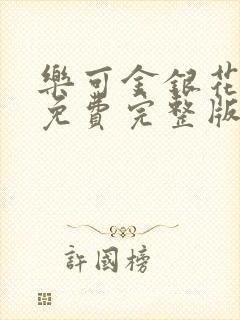 樂可金銀花
免費完整版
許國榜